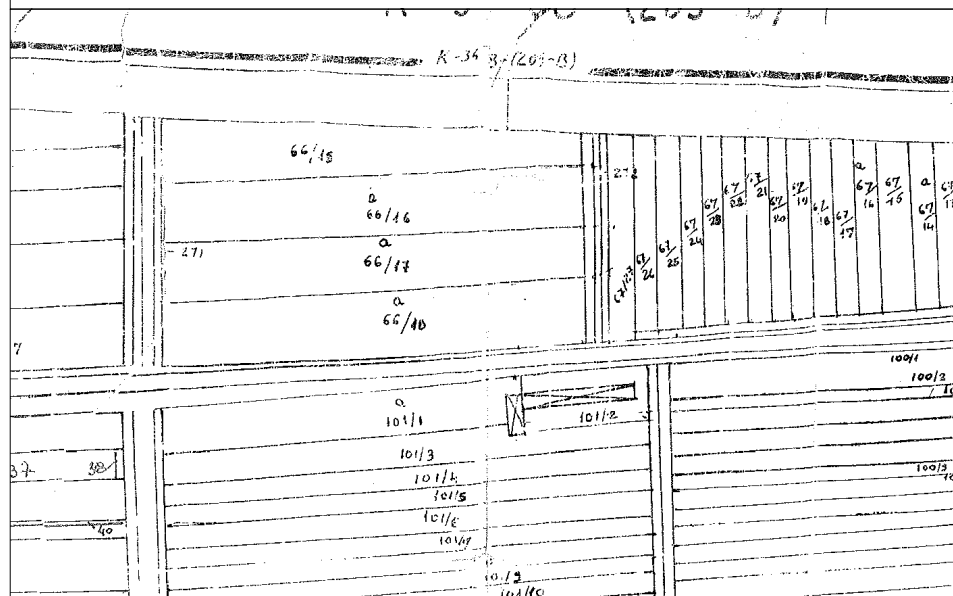 K-34 B-(209-B)
66/15
a
66/16
a
66/17
a
66/18
271
272
67/27
67/26
67/25
67/24
67/23
67/22
67/21
67/20
67/19
67/18
67/17
a
67/16
67/15
a
67/14
7
100/1
100/2
100/3
a
101/1
101/2
101/3
101/4
101/5
101/6
101/7
101/9
101/10
37
38
40